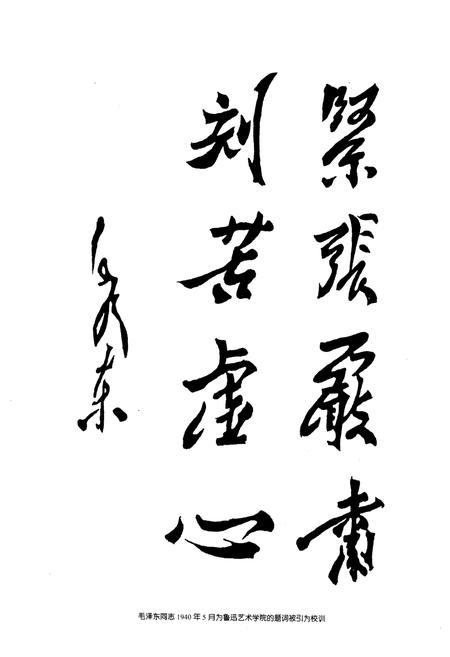 緊張嚴肅
刻苦虚心
毛泽东
毛泽东同志1940年5月为鲁迅艺术学院的题词被引为校训